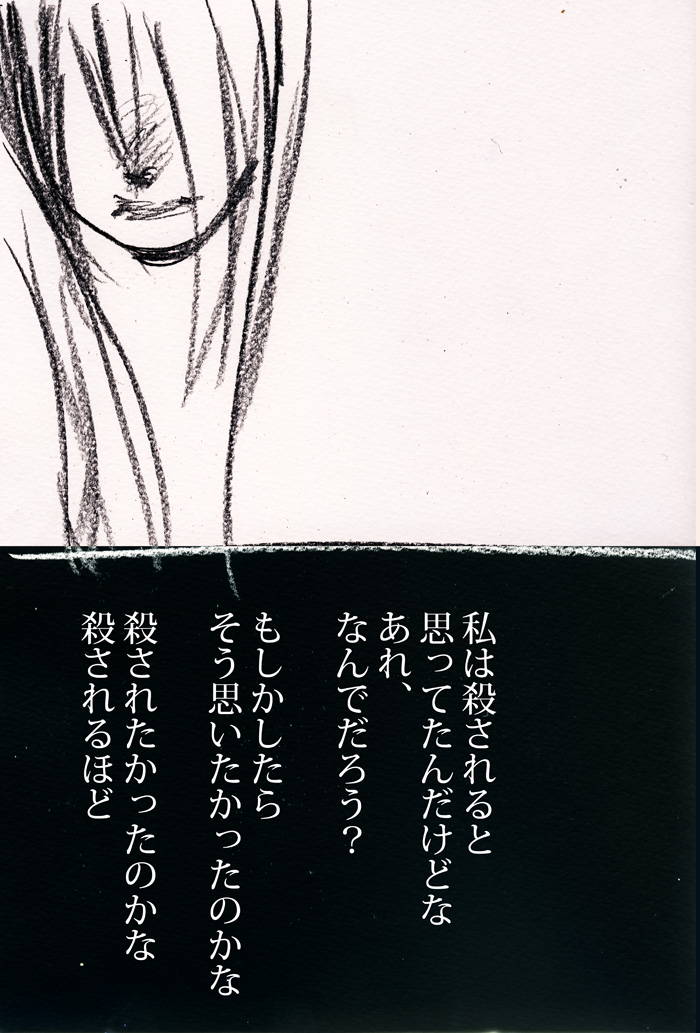 私は殺されると
思ってたんだけどな
あれ、
なんでだろう？
もしかしたら
そう思いたかったのかな
殺されたかったのかな
殺されるほど